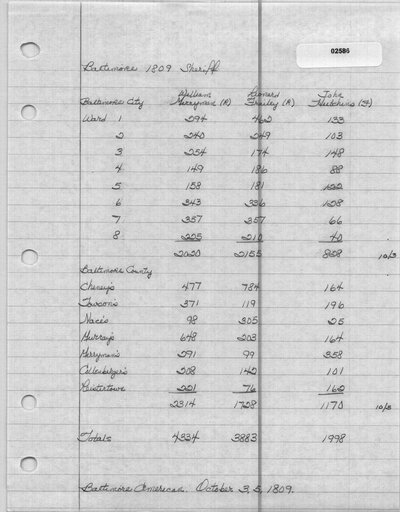 02586
Baltimore 1809 Sheriff
William Leonard John
Baltimore City Merryman (R) Frailey (R) Hutchins (F)
Ward 1 294 462 133
2 240 249 103
3 254 174 148
4 149 186 88
5 158 181 122
6 343 336 128
7 357 357 66
8 225 210 40
2020 2155 828 10/3
Baltimore County
Cheney's 477 784 164
Towson's 371 119 196
Nace's 98 305 25
Murray's 648 203 164
Merryman's 291 99 358
208 142 101
Reistertown 221 76 162
2314 1728 1170 10/5
Totals 4334 3883 1998
Baltimore American. October 3, 5, 1809.